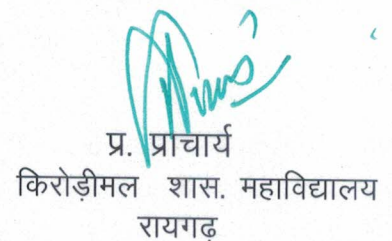 प्र. प्राचार्य
किरोड़ीमल शास. महाविद्यालय
रायगढ़